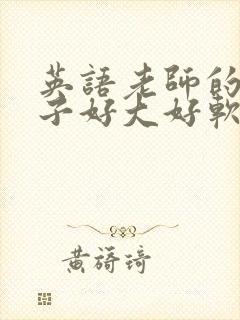 英語老師的
子好大好軟
黃旖琦